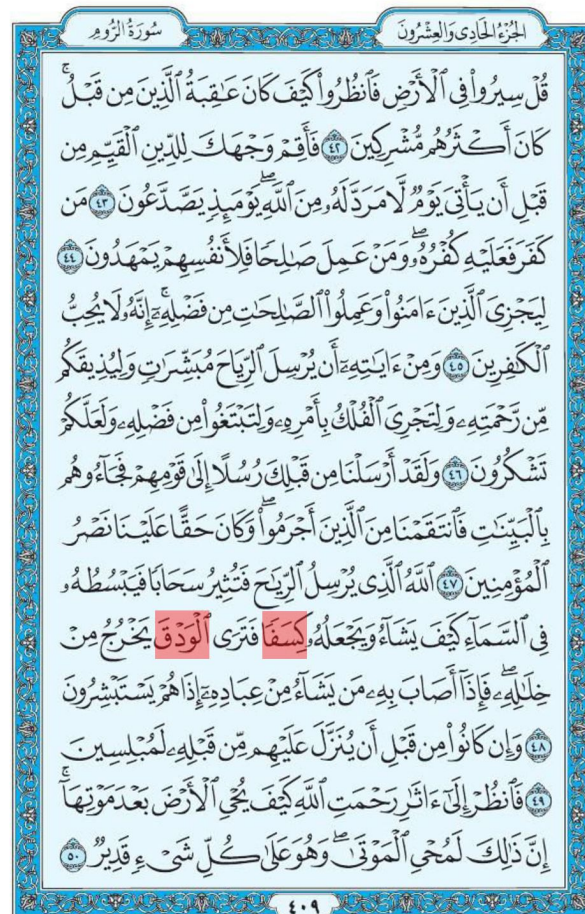 الجُزْءُ الْحَادِى وَالْعِشْرُونَ
سُورَةُ الرُّومِ
قُلْ سِيرُوا۟ فِى ٱلْأَرْضِ فَٱنظُرُوا۟ كَيْفَ كَانَ عَـٰقِبَةُ ٱلَّذِينَ مِن قَبْلُ ۚ
كَانَ أَكْثَرُهُم مُّشْرِكِينَ ٤٢ فَأَقِمْ وَجْهَكَ لِلدِّينِ ٱلْقَيِّمِ مِن
قَبْلِ أَن يَأْتِىَ يَوْمٌ لَّا مَرَدَّ لَهُۥ مِنَ ٱللَّهِ ۖ يَوْمَئِذٍ يَصَّدَّعُونَ ٤٣ مَن
كَفَرَ فَعَلَيْهِ كُفْرُهُۥ ۖ وَمَنْ عَمِلَ صَـٰلِحًا فَلِأَنفُسِهِمْ يَمْهَدُونَ ٤٤
لِيَجْزِىَ ٱلَّذِينَ ءَامَنُوا۟ وَعَمِلُوا۟ ٱلصَّـٰلِحَـٰتِ مِن فَضْلِهِۦٓ ۚ إِنَّهُۥ لَا يُحِبُّ
ٱلْكَـٰفِرِينَ ٤٥ وَمِنْ ءَايَـٰتِهِۦٓ أَن يُرْسِلَ ٱلرِّيَاحَ مُبَشِّرَٰتٍ وَلِيُذِيقَكُم
مِّن رَّحْمَتِهِۦ وَلِتَجْرِىَ ٱلْفُلْكُ بِأَمْرِهِۦ وَلِتَبْتَغُوا۟ مِن فَضْلِهِۦ وَلَعَلَّكُمْ
تَشْكُرُونَ ٤٦ وَلَقَدْ أَرْسَلْنَا مِن قَبْلِكَ رُسُلًا إِلَىٰ قَوْمِهِمْ فَجَآءُوهُم
بِٱلْبَيِّنَـٰتِ فَٱنتَقَمْنَا مِنَ ٱلَّذِينَ أَجْرَمُوا۟ ۖ وَكَانَ حَقًّا عَلَيْنَا نَصْرُ
ٱلْمُؤْمِنِينَ ٤٧ ٱللَّهُ ٱلَّذِى يُرْسِلُ ٱلرِّيَـٰحَ فَتُثِيرُ سَحَابًا فَيَبْسُطُهُۥ
فِى ٱلسَّمَآءِ كَيْفَ يَشَآءُ وَيَجْعَلُهُۥ كِسَفًا فَتَرَى ٱلْوَدْقَ يَخْرُجُ مِنْ
خِلَـٰلِهِۦ ۖ فَإِذَآ أَصَابَ بِهِۦ مَن يَشَآءُ مِنْ عِبَادِهِۦٓ إِذَا هُمْ يَسْتَبْشِرُونَ
٤٨ وَإِن كَانُوا۟ مِن قَبْلِ أَن يُنَزَّلَ عَلَيْهِم مِّن قَبْلِهِۦ لَمُبْلِسِينَ
٤٩ فَٱنظُرْ إِلَىٰٓ ءَاثَـٰرِ رَحْمَتِ ٱللَّهِ كَيْفَ يُحْىِ ٱلْأَرْضَ بَعْدَ مَوْتِهَآ ۚ
إِنَّ ذَٰلِكَ لَمُحْىِ ٱلْمَوْتَىٰ ۖ وَهُوَ عَلَىٰ كُلِّ شَىْءٍ قَدِيرٌ ٥٠
٤٠٩